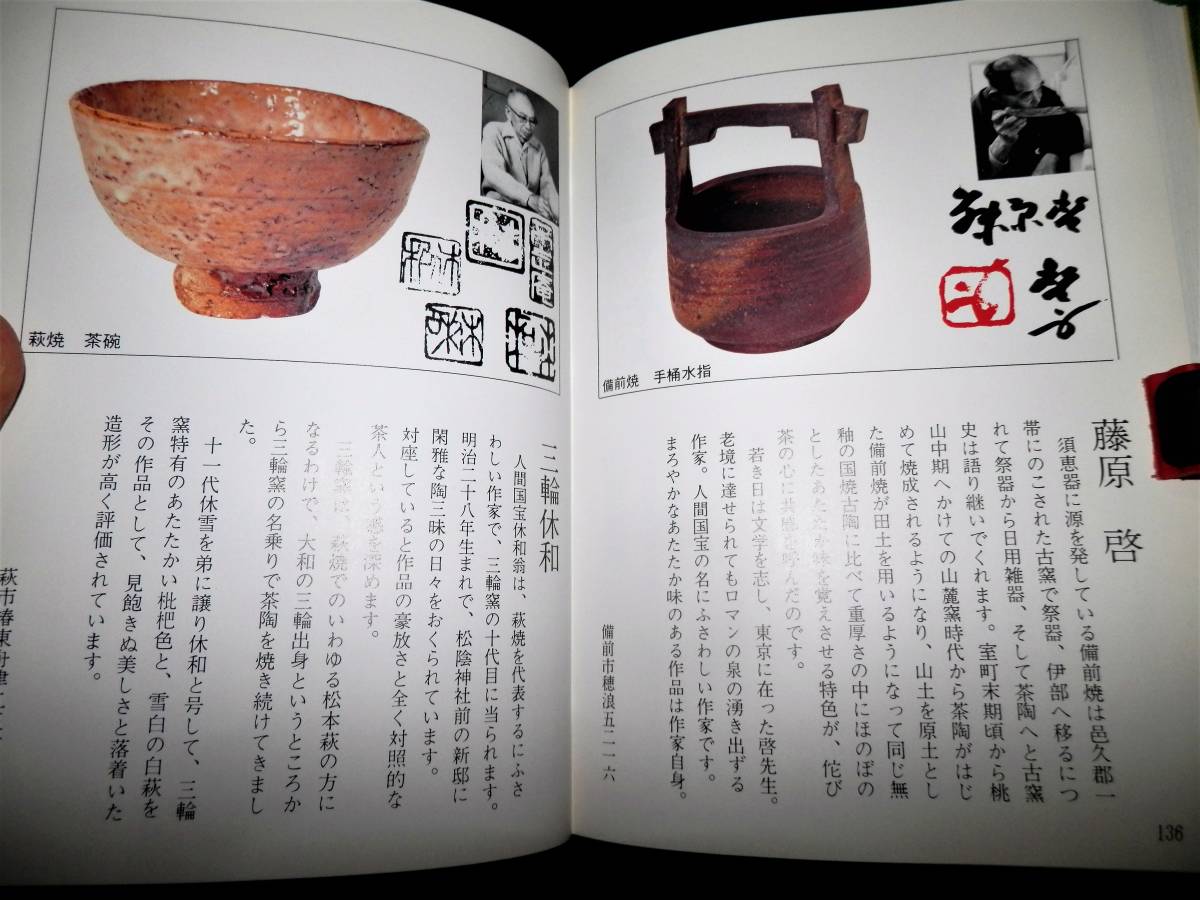 備前焼　手桶水指
藤原　啓
須恵器に源を発している備前焼は邑久郡一
帯にのこされた古窯で祭器、伊部へ移るにつ
れて祭器から日用雑器、そして茶陶へと古窯
史は語り継いでくれます。室町末期頃から桃
山中期へかけての山麓窯時代から茶陶がはじ
めて焼成されるようになり、山土を原土とし
た備前焼が田土を用いるようになって同じ無
釉の国焼古陶に比べて重厚さの中にほのぼの
としたあたたか味を覚えさせる特色が、侘び
茶の心に共感を呼んだのです。
若き日は文学を志し、東京に在った啓先生。
老境に達せられてもロマンの泉の湧き出ずる
作家。人間国宝の名にふさわしい作家です。
まろやかなあたたか味のある作品は作家自身。
備前市穂浪五二一六
136
萩焼　茶碗
三輪休和
人間国宝休和翁は、萩焼を代表するにふさ
わしい作家で、三輪窯の十代目に当られます。
明治二十八年生まれで、松陰神社前の新邸に
閑雅な陶三昧の日々をおくられています。
対座していると作品の豪放さと全く対照的な
茶人という感を深めます。
三輪窯は、萩焼でのいわゆる松本萩の方に
なるわけで、大和の三輪出身というところか
ら三輪窯の名乗りで茶陶を焼き続けてきまし
た。
十一代休雪を弟に譲り休和と号して、三輪
窯特有のあたたかい枇杷色と、雪白の白萩を
その作品として、見飽きぬ美しさと落着いた
造形が高く評価されています。
萩市椿東舟津